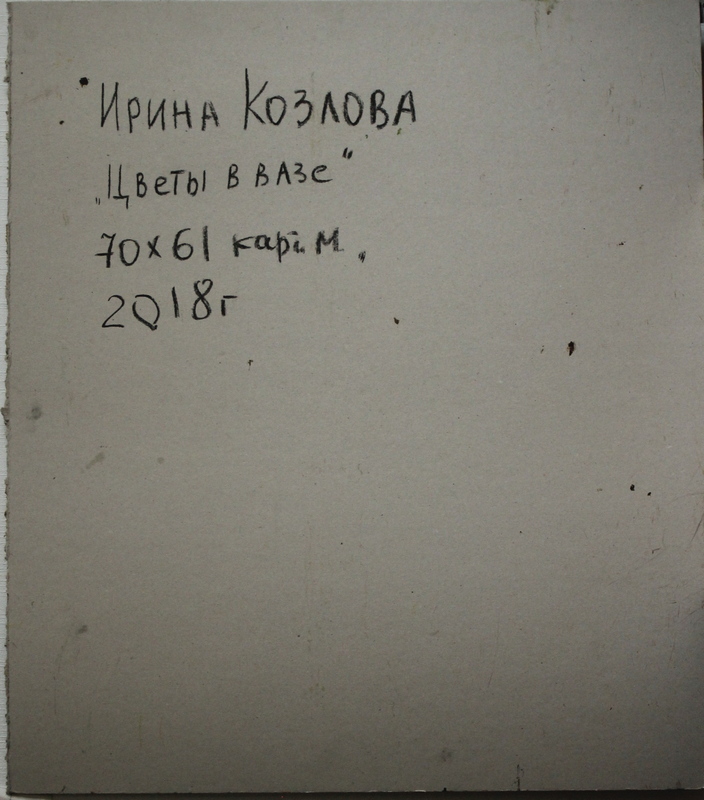 Ирина Козлова
„Цветы в вазе"
70х61 карт. м.
2018г